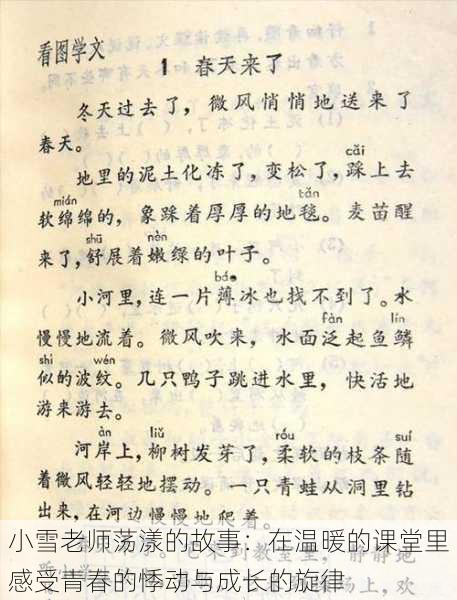 看图学文
1 春天来了
冬天过去了，微风悄悄地送来了
春天。
cǎi
地里的泥土化冻了，变松了，踩上去
mián tǎn
软绵绵的，象踩着厚厚的地毯。麦苗醒
shū nèn
来了，舒展着嫩绿的叶子。
báo
小河里，连一片薄冰也找不到了。水
fàn lín
慢慢地流着。微风吹来，水面泛起鱼鳞
shì wén
似的波纹。几只鸭子跳进水里，快活地
游来游去。
àn liǔ róu suí
河岸上，柳树发芽了，柔软的枝条随
着微风轻轻地摆动。一只青蛙从洞里钻
出来，在河边慢慢地爬着。
小雪老师荡漾的故事：在温暖的课堂里
感受青春的悸动与成长的旋律